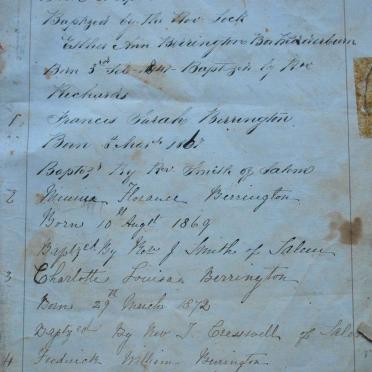 Baptized by the Rev Lock
Esther Ann Berrington
Born 3rd Feb Baptized by Rev
Richards
1 Frances Sarah Berrington
Born
Baptzd By Rev Smith of Salem
2 Florance Berrington
Born 10st Augst 1869
Baptzed By Rev J Smith of Salem
3 Charlotte Louisa Berrington
Born 29th March 1872
Baptzed By Rev T. Cresswell of Salem
4 Fredrick William Berrington